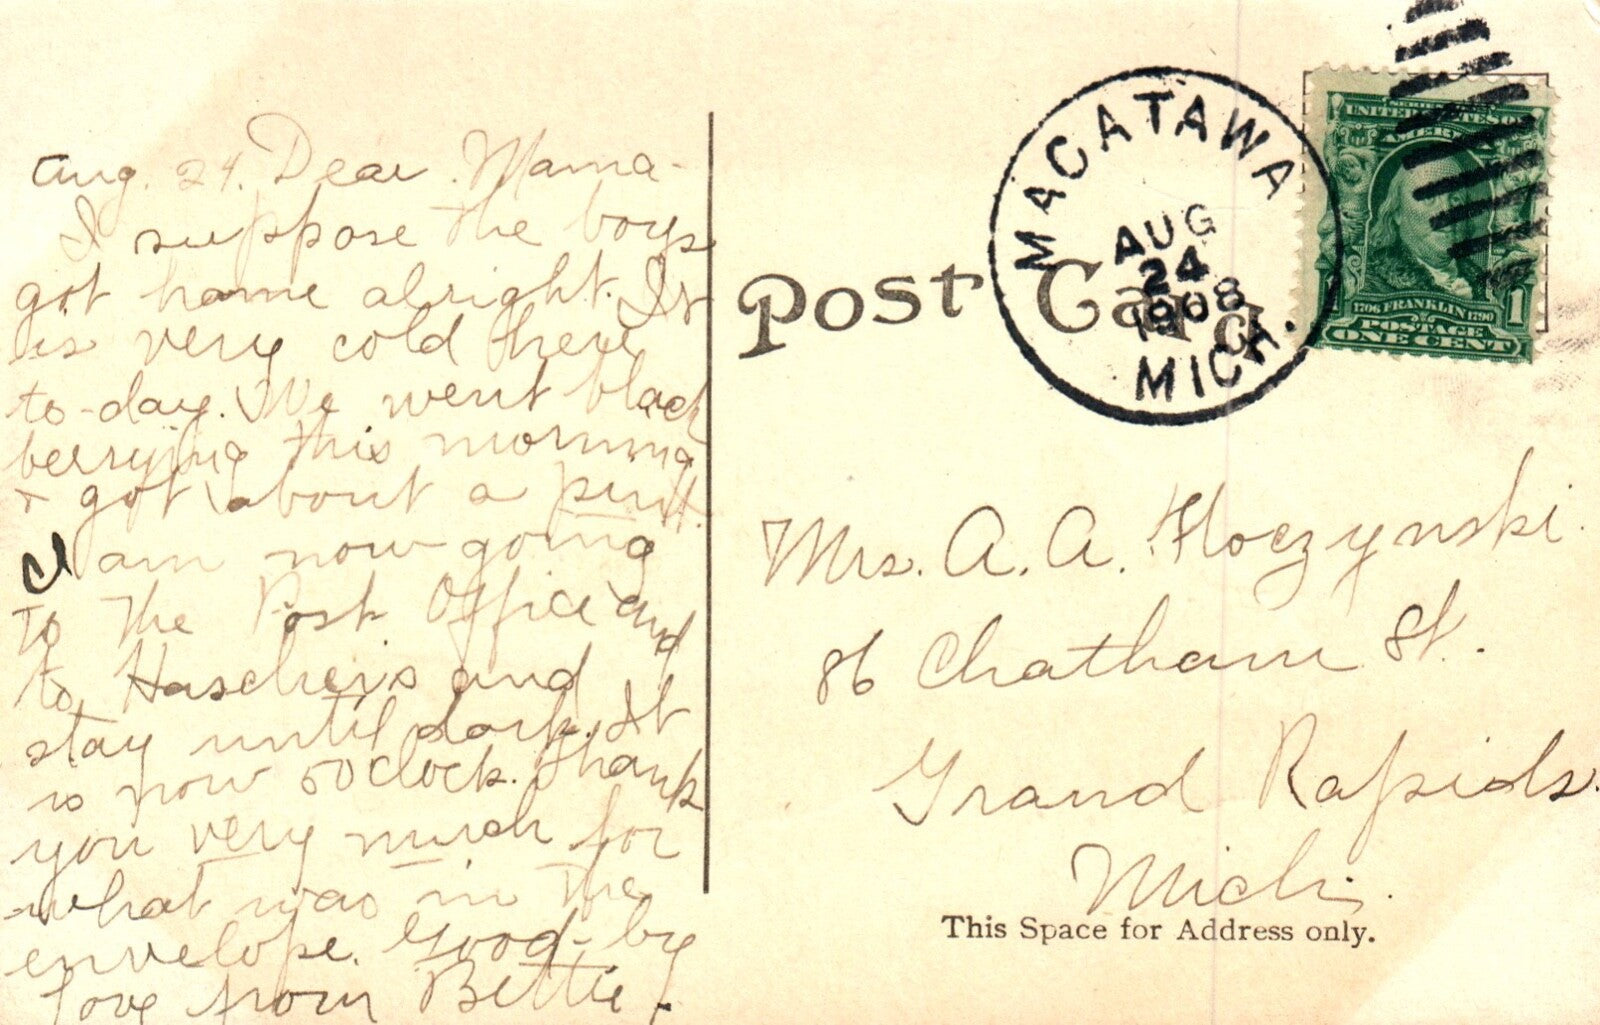 Aug. 24. Dear Mama-
I suppose the boys
got home alright. It
is very cold here
to-day. We went black
berrying this morning
+ got about a pint.
I am now going
to the Post Office and
to Hascher's and
stay until dark. It
is now 5 Oclock. Thank
you very much for
what was in the
envelope. Good-by
Love from Bettie.
Post Card
MACATAWA
AUG
24
1908
MICH.
SERIES 1902
UNITED STATES OF
AMERICA
1706 FRANKLIN 1790
POSTAGE
1 ONE CENT 1
Mrs. A. A. Hoczynski
86 Chatham St.
Grand Rapids.
Mich.
This Space for Address only.